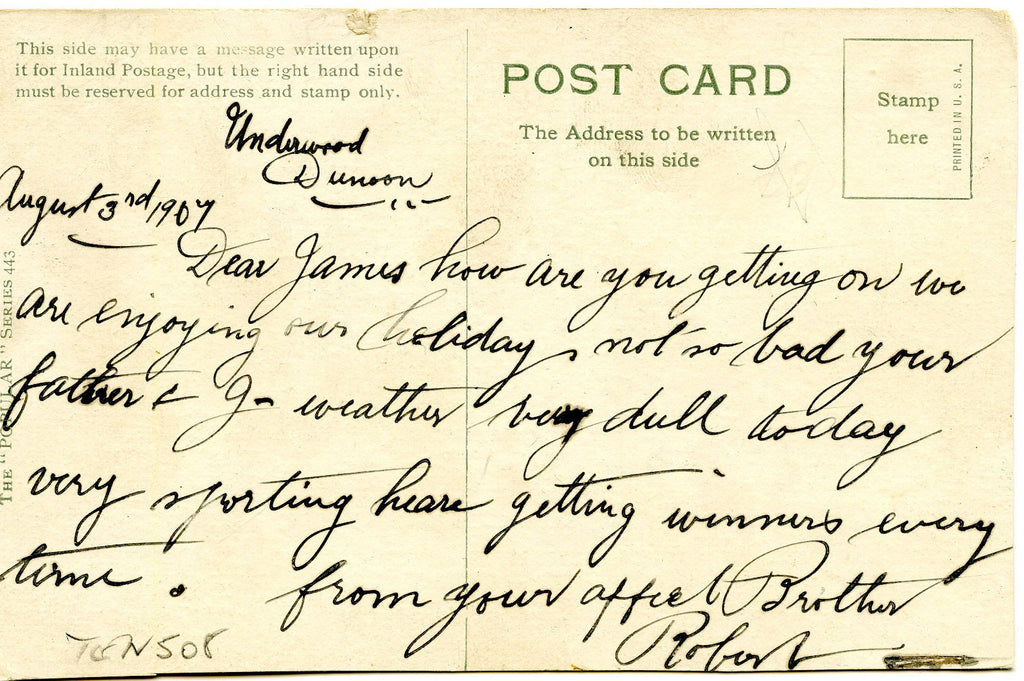 This side may have a message written upon
it for Inland Postage, but the right hand side
must be reserved for address and stamp only.
POST CARD
The Address to be written
on this side
Stamp
here
PRINTED IN U. S. A.
THE "POPULAR" SERIES 443
Underwood
Dunoon
August 3rd 1907
Dear James how are you getting on we
are enjoying our holiday, not so bad your
father & I - weather very dull today
very sporting heare getting winners every
time.
from your affect Brother
Robert